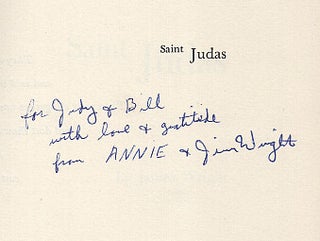 Saint Judas
for Judy & Bill
with love & gratitude
from ANNIE & Jim Wright